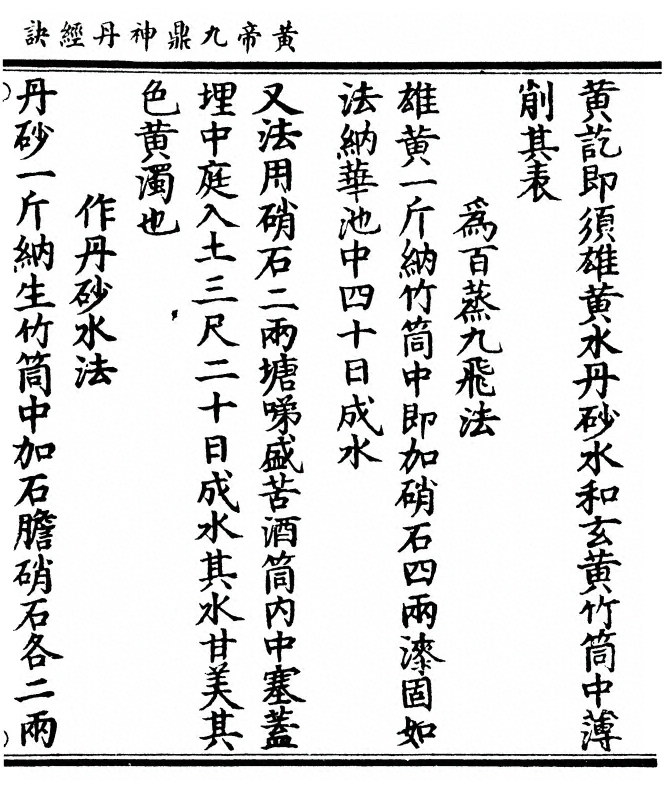 黃帝九鼎神丹經訣
黃訖即須雄黃水丹砂水和玄黃竹筒中薄
削其表
為百蒸九飛法
雄黃一斤納竹筒中即加硝石四兩漆固如
法納華池中四十日成水
又法用硝石二兩塘㖒盛苦酒筒內中塞蓋
埋中庭入土三尺二十日成水其水甘美其
色黃濁也
作丹砂水法
丹砂一斤納生竹筒中加石膽硝石各二兩